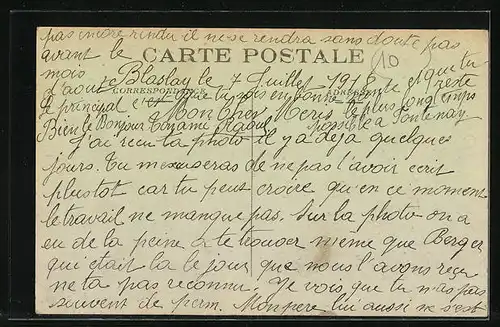 pas encore rendu il ne se rendra sans doute pas
avant le
mois
d'aout
CARTE POSTALE
10
Blaslay le 7 Juillet 1918
CORRESPONDANCE
ADRESSE
le principal c'est que tu sois en bonne et que tu reste
Mon Cher le plus longtemps
Bien le Bonjour possible a Fontenay
J'ai reçu ta photo il y a déja quelques
jours. Tu m'excuseras de ne pas l'avoir ecrit
plustot car tu peut croire qu'en ce moment
le travail ne manque pas. Sur la photo on a
eu de la peine a te trouver meme que Berger
qui était la le jour que nous l'avons reçu
ne ta pas reconnu. Je vois que tu n'as pas
souvent de perm. Mon pere lui aussi ne s'est